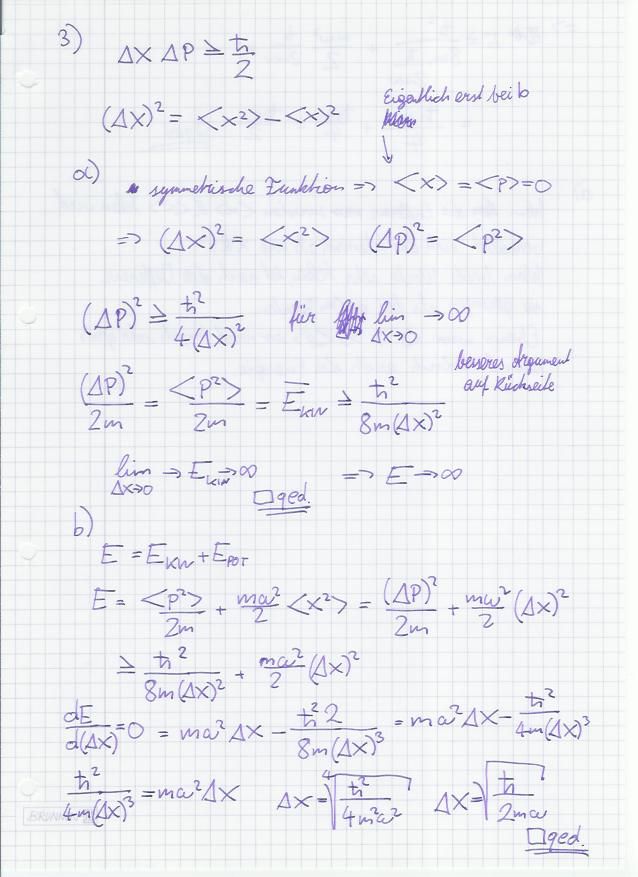 3) ΔX ΔP ≥ ħ/2
(ΔX)² = <X²> - <X>²
Eigentlich erst bei b
a) symmetrische Funktion => <X> = <P> = 0
=> (ΔX)² = <X²> (ΔP)² = <P²>
(ΔP)² ≥ ħ²/4(ΔX)² für lim ΔX→0 → ∞
besseres Argument
auf Rückseite
(ΔP)²/2m = <P²>/2m = E̅_KIN ≥ ħ²/8m(ΔX)²
lim ΔX→0 → E_KIN → ∞ => E → ∞
□ qed.
b)
E = E_KIN + E_POT
E = <P²>/2m + mω²/2 <X²> = (ΔP)²/2m + mω²/2 (ΔX)²
≥ ħ²/8m(ΔX)² + mω²/2 (ΔX)²
dE/d(ΔX) = 0 = mω² ΔX - ħ² 2/8m(ΔX)³ = mω² ΔX - ħ²/4m(ΔX)³
ħ²/4m(ΔX)³ = mω² ΔX ΔX = ⁴√(ħ²/4m²ω²) ΔX = √(ħ/2mω)
□ qed.